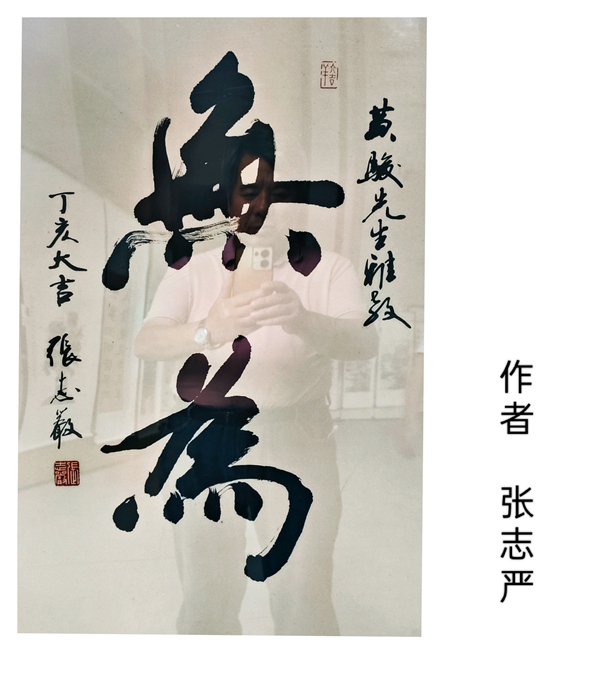 黄駿先生雅教
無為
丁亥大吉
張志嚴
張志嚴
作者 张志严